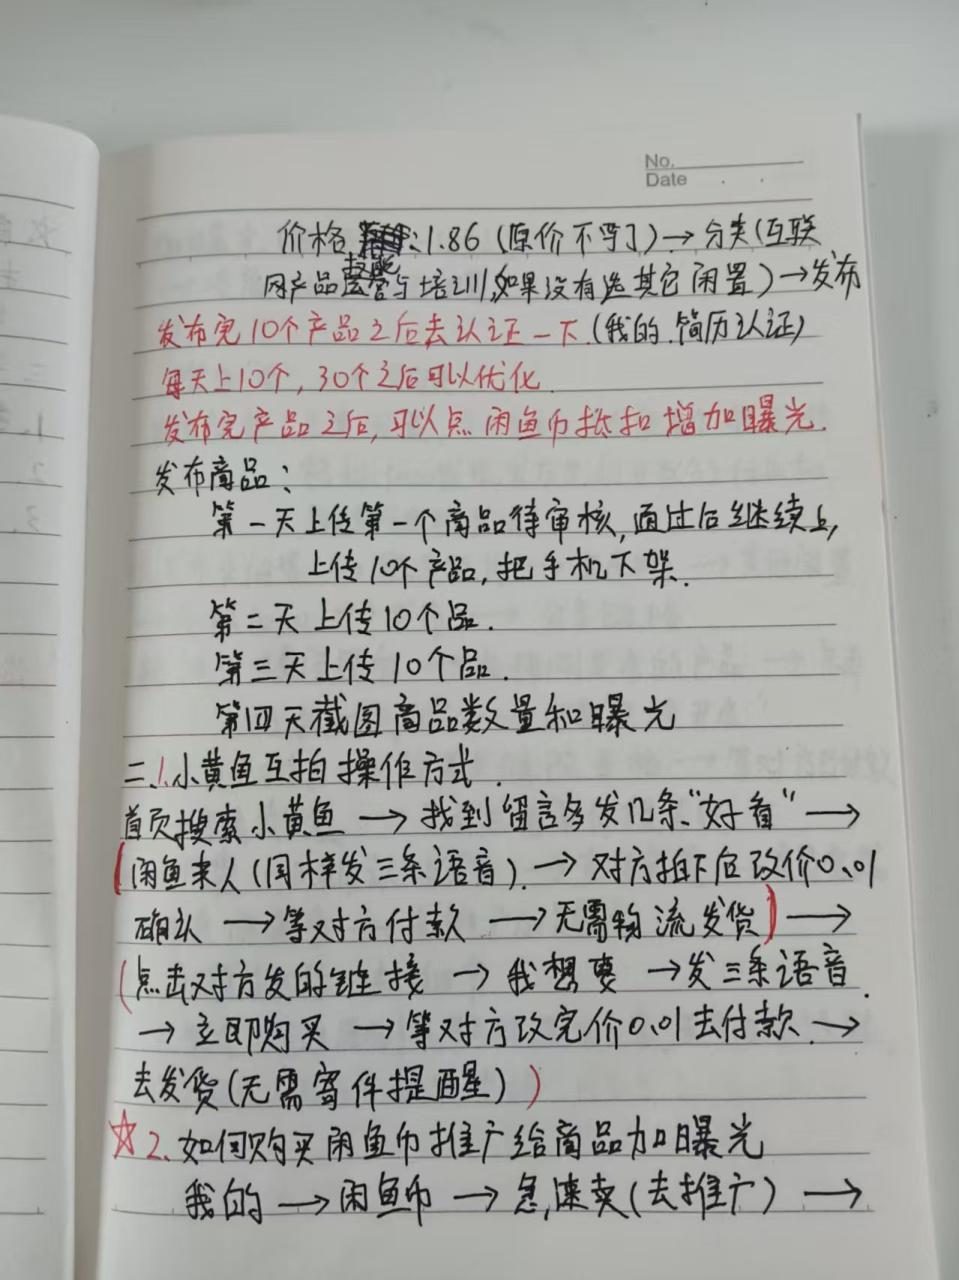 No.
Date
价格:1.86(原价不写了)→分类(互联
技能
网产品运营与培训,如果没有选其它闲置)→发布
发布完10个产品之后去认证一下.(我的.简历认证)
每天上10个,30个之后可以优化.
发布完产品之后,可以点闲鱼币抵扣增加曝光.
发布商品:
第一天上传第一个商品待审核,通过后继续上,
上传10个产品,把手机下架.
第二天上传10个品.
第三天上传10个品.
第四天截图商品数量和曝光
二、1.小黄鱼互拍操作方式.
首页搜索小黄鱼→找到留言多发几条"好看"→
(闲鱼来人(同样发三条语音).→对方拍下后改价0.01
确认→等对方付款→无需物流发货)→
(点击对方发的链接→我想要→发三条语音.
→立即购买→等对方改完价0.01去付款.→
去发货(无需寄件提醒))
☆2.如何购买闲鱼币推广给商品加曝光
我的→闲鱼币→急速卖(去推广)→